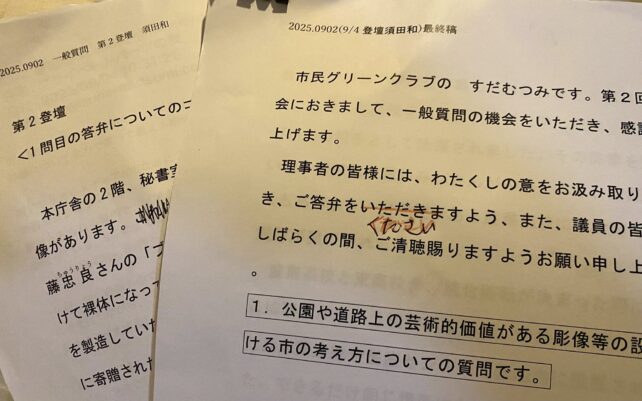 2025.0902　一般質問　第2登壇　須田和
第2登壇
<1問目の答弁についてのコ
本庁舎の2階、秘書室
像があります。
ちゅうりょう
藤忠良さんの「ブ
けて裸体になって
を製造してい
に寄贈された
2025.0902(9/4登壇須田和)最終稿
市民グリーンクラブの　すだむつみです。第2回
会におきまして、一般質問の機会をいただき、感謝
上げます。
理事者の皆様には、わたくしの意をお汲み取り
き、ご答弁をいただきますよう、また、議員の皆
ください
しばらくの間、ご清聴賜りますようお願い申し上
。
1．公園や道路上の芸術的価値がある彫像等の設
ける市の考え方についての質問です。